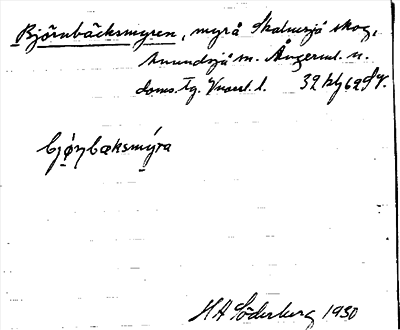 Björnbäcksmyren, myrå Skalmsjö skog,
Anundsjö sn. Ångerml. n.
doms. tg. Vnorrl. l. 32
bjǿṇbæksmýra
HA Söderberg 1930